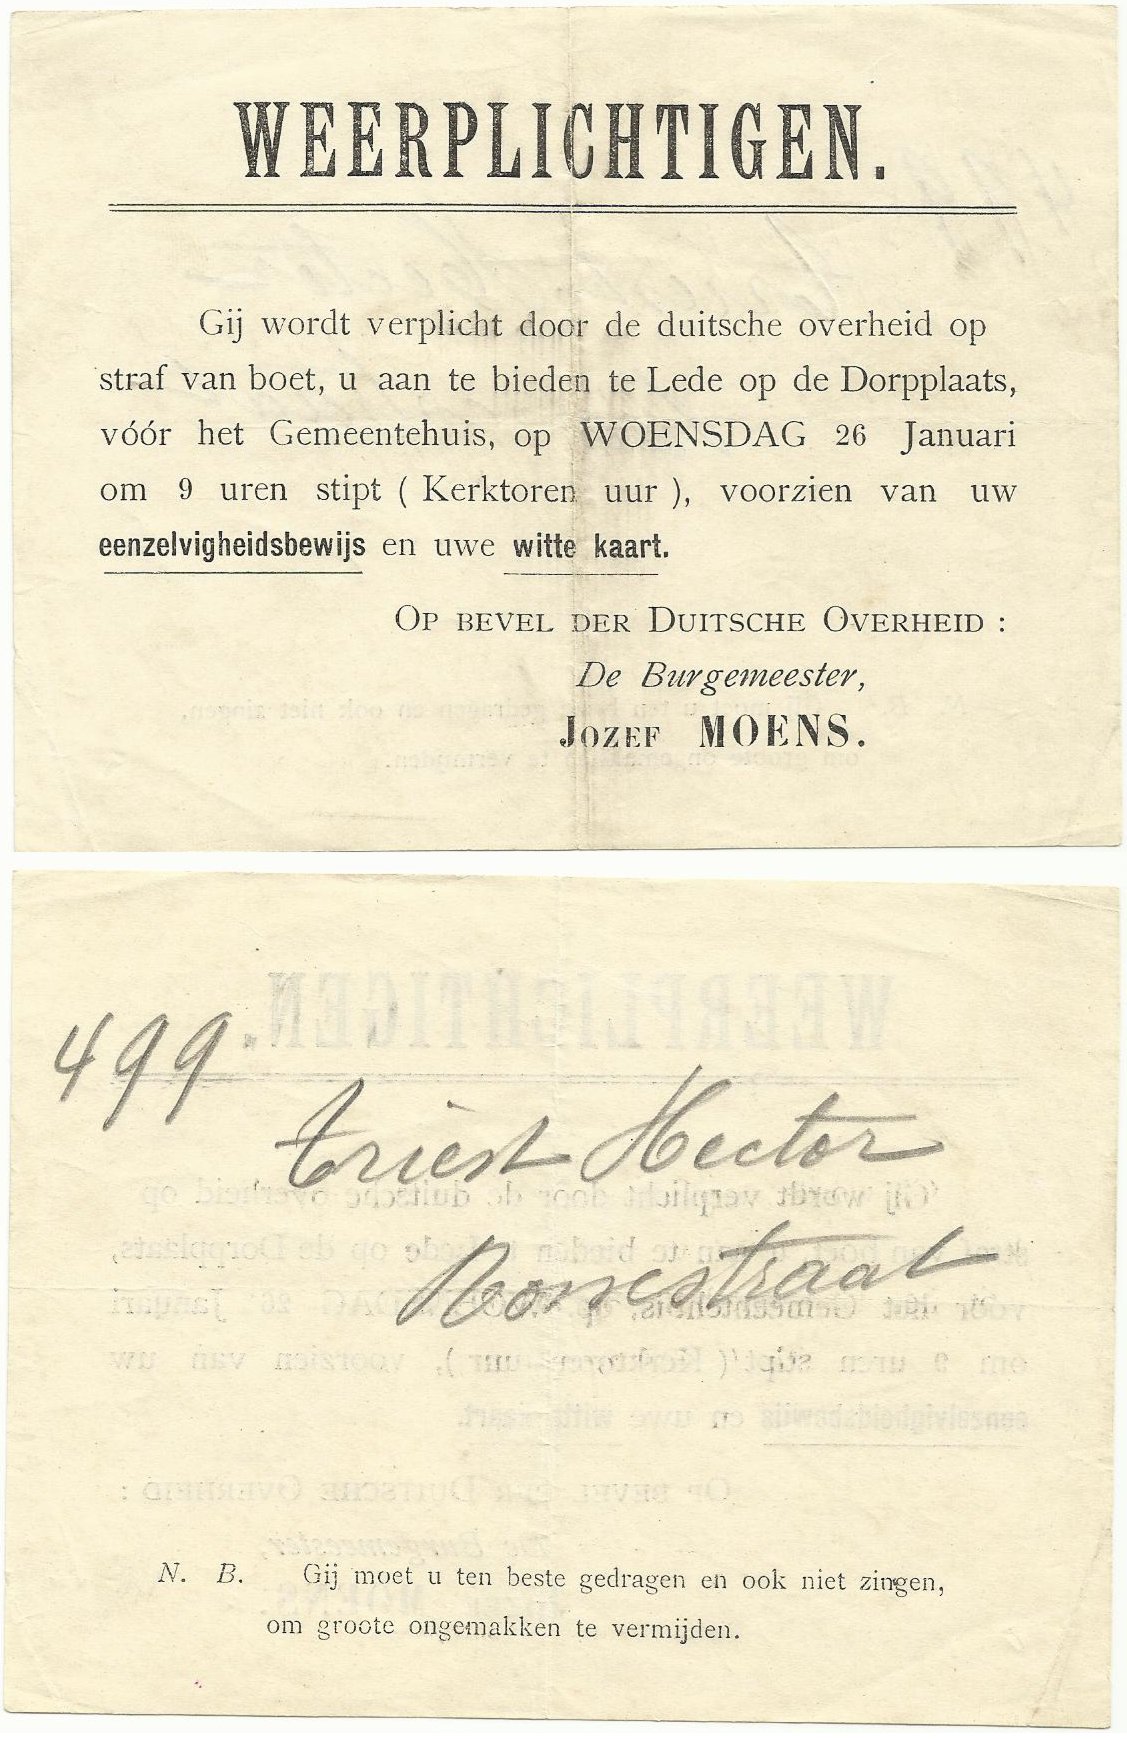 WEERPLICHTIGEN.
Gij wordt verplicht door de duitsche overheid op
straf van boet, u aan te bieden te Lede op de Dorpplaats,
vóór het Gemeentehuis, op WOENSDAG 26 Januari
om 9 uren stipt ( Kerktoren uur ), voorzien van uw
eenzelvigheidsbewijs en uwe witte kaart.
OP BEVEL DER DUITSCHE OVERHEID :
De Burgemeester,
JOZEF MOENS.
499
Triest Hector
Ronsestraat
N. B. Gij moet u ten beste gedragen en ook niet zingen,
om groote ongemakken te vermijden.